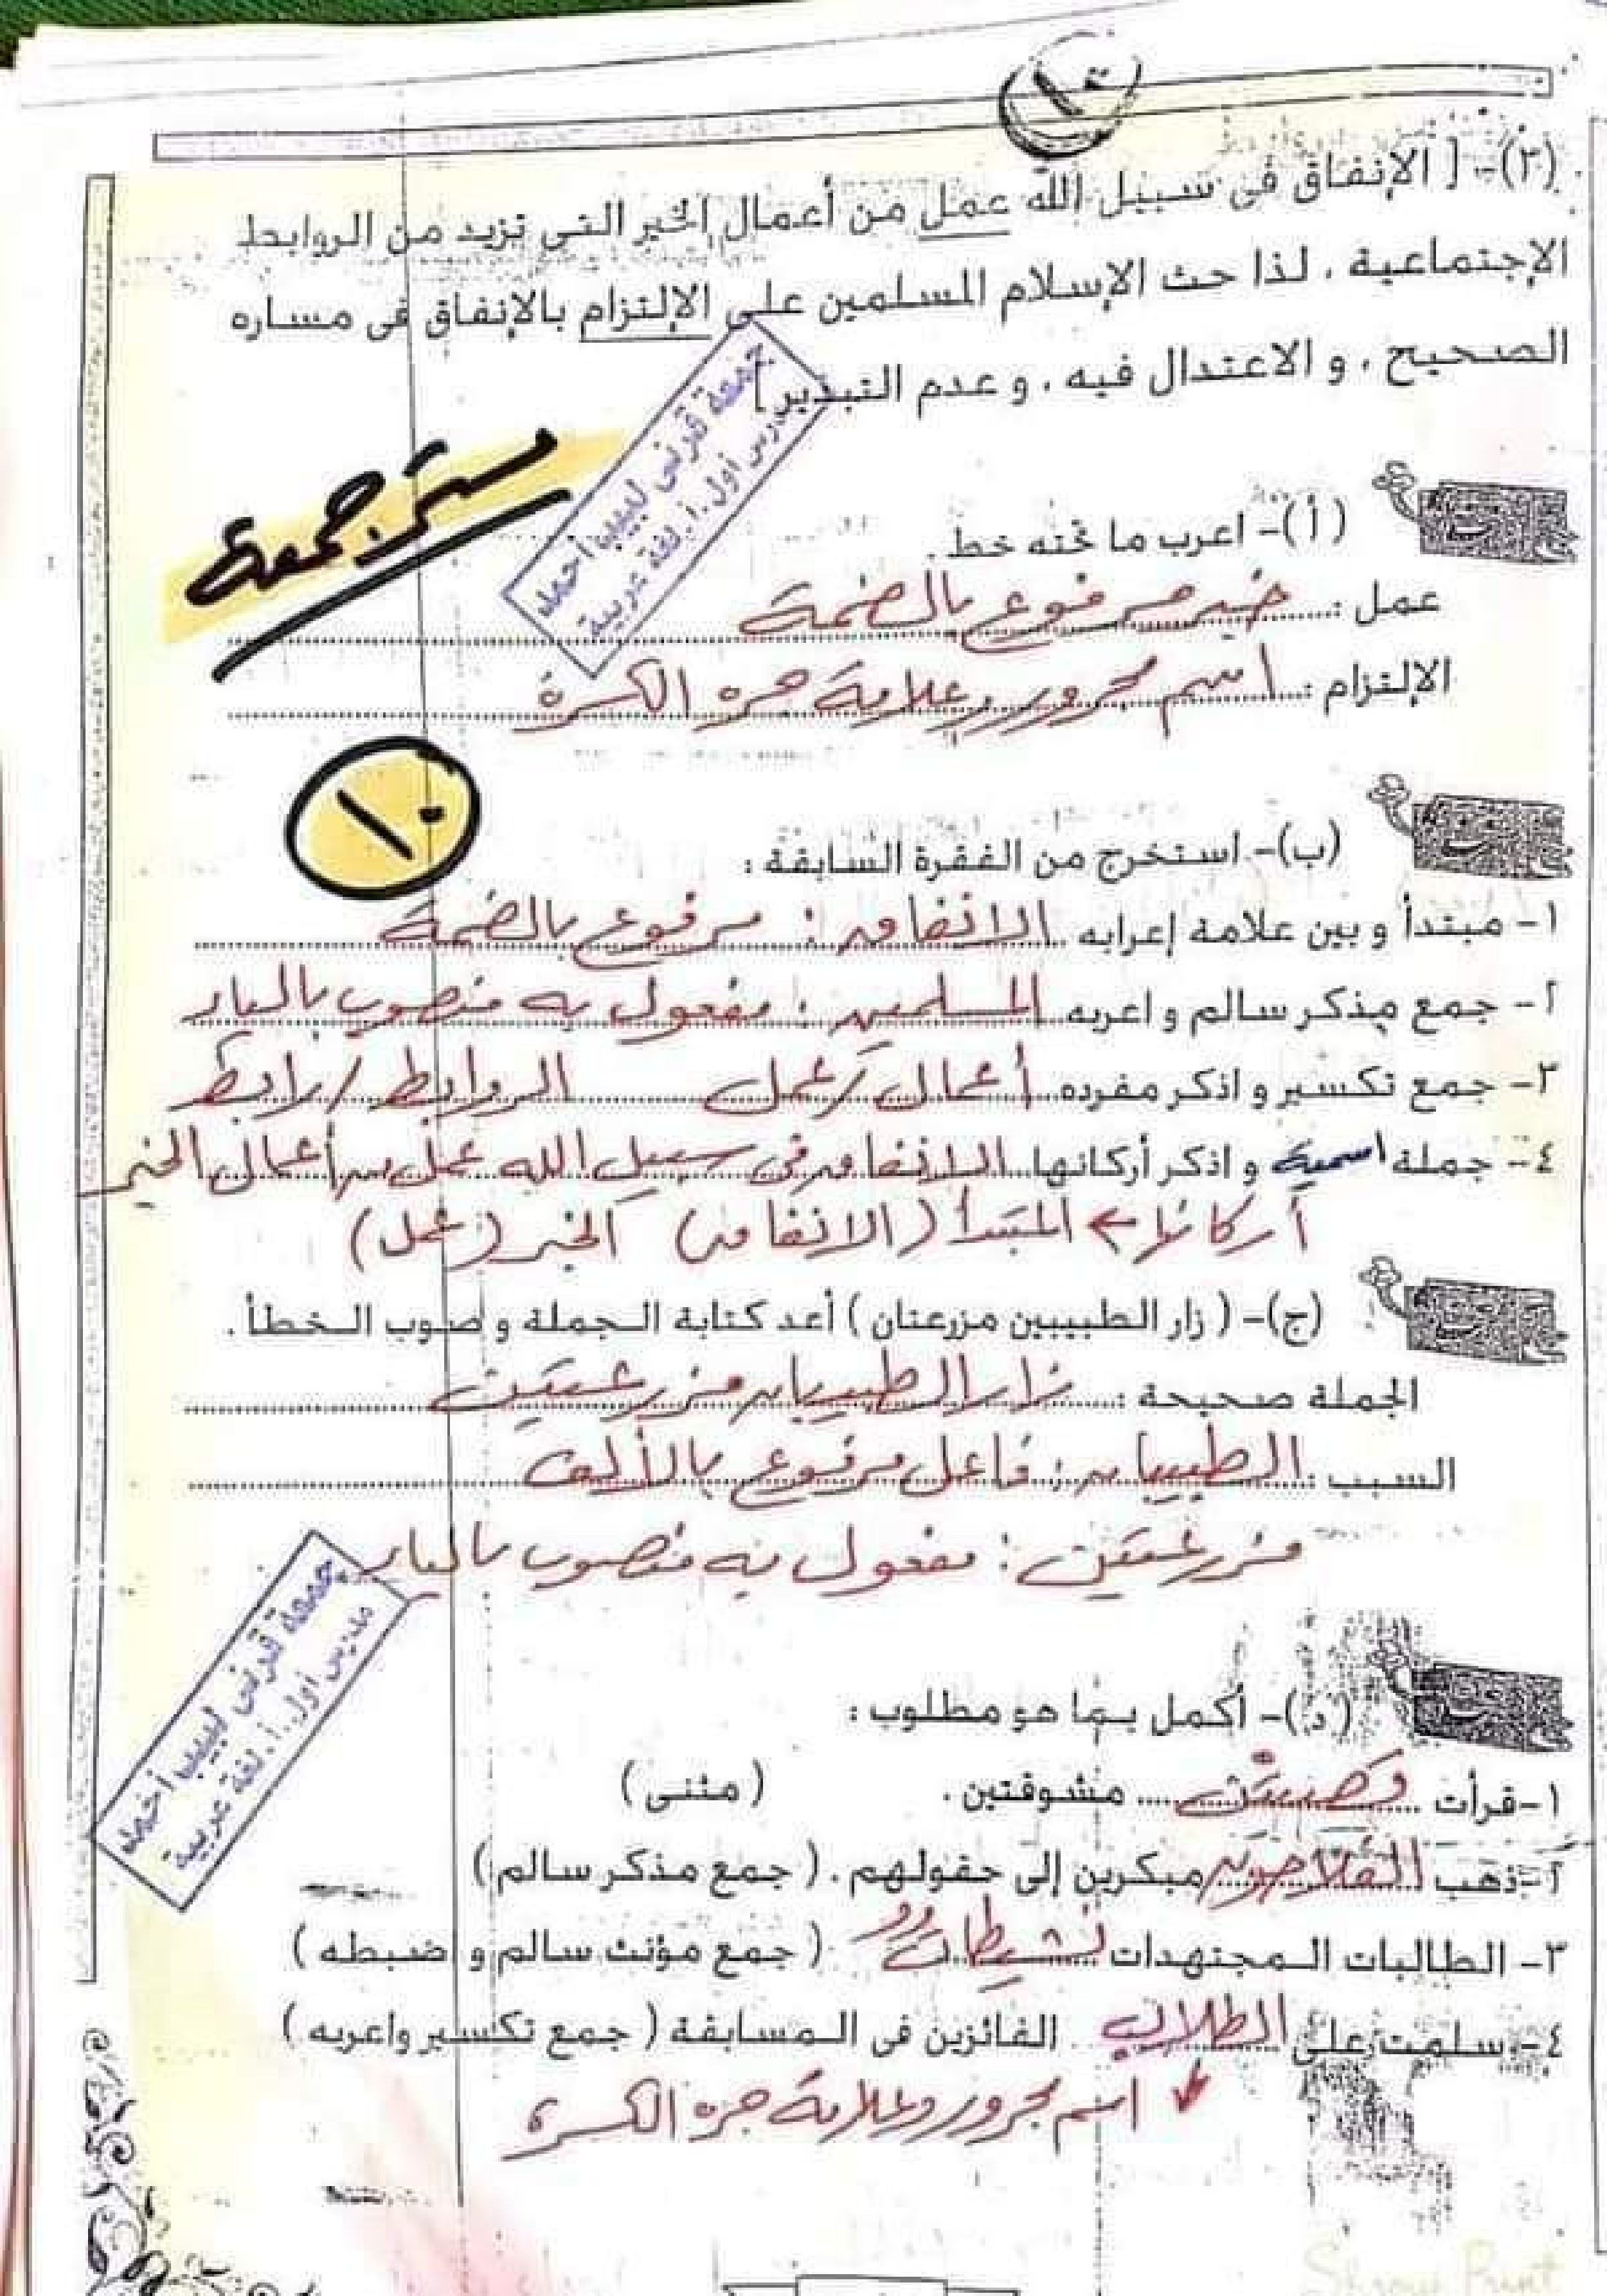 ١٠
(٣)- [ الإنفاق فى سبيل الله عمل من أعمال الخير التى تزيد من الروابط
الإجتماعية ، لذا حث الإسلام المسلمين على الإلتزام بالإنفاق فى مساره
الصحيح ، و الاعتدال فيه ، و عدم التبذير]
جمعة قرنى لبيب أحمد
مدرس أول .أ. لغة عربية
مستر جمعة
(أ)- اعرب ما تحته خط .
عمل : خبر مرفوع بالضمة
الإلتزام : اسم مجرور وعلامة جره الكسرة
١٠
(ب)- استخرج من الفقرة السابقة :
١- مبتدأ و بين علامة إعرابه الانفاق : مرفوع بالضمة
٢- جمع مذكر سالم و اعربه المسلمين : مفعول به منصوب بالياء
٣- جمع تكسير و اذكر مفرده أعمال / عمل الروابط / رابط
٤- جملة اسمية و اذكر أركانها الانفاق فى سبيل الله عمل من أعمال الخير
أركانها ← المبتدأ (الانفاق) الخبر (عمل)
(ج)- ( زار الطبيبين مزرعتان ) أعد كتابة الجملة و صوب الخطأ .
الجملة صحيحة : زار الطبيبان مزرعتين
السبب : الطبيبان : فاعل مرفوع بالألف
مزرعتين : مفعول به منصوب بالياء
جمعة قرنى لبيب أحمد
مدرس أول .أ. لغة عربية
(د)- أكمل بما هو مطلوب :
١-قرأت قصتين مشوقتين . ( مثنى )
٢-ذهب الفلاحون مبكرين إلى حقولهم . ( جمع مذكر سالم )
٣- الطالبات المجتهدات نشيطاتٌ ( جمع مؤنث سالم و اضبطه )
٤- سلمت على الطلاب الفائزين فى المسابقة ( جمع تكسير واعربه )
اسم مجرور وعلامة جره الكسرة